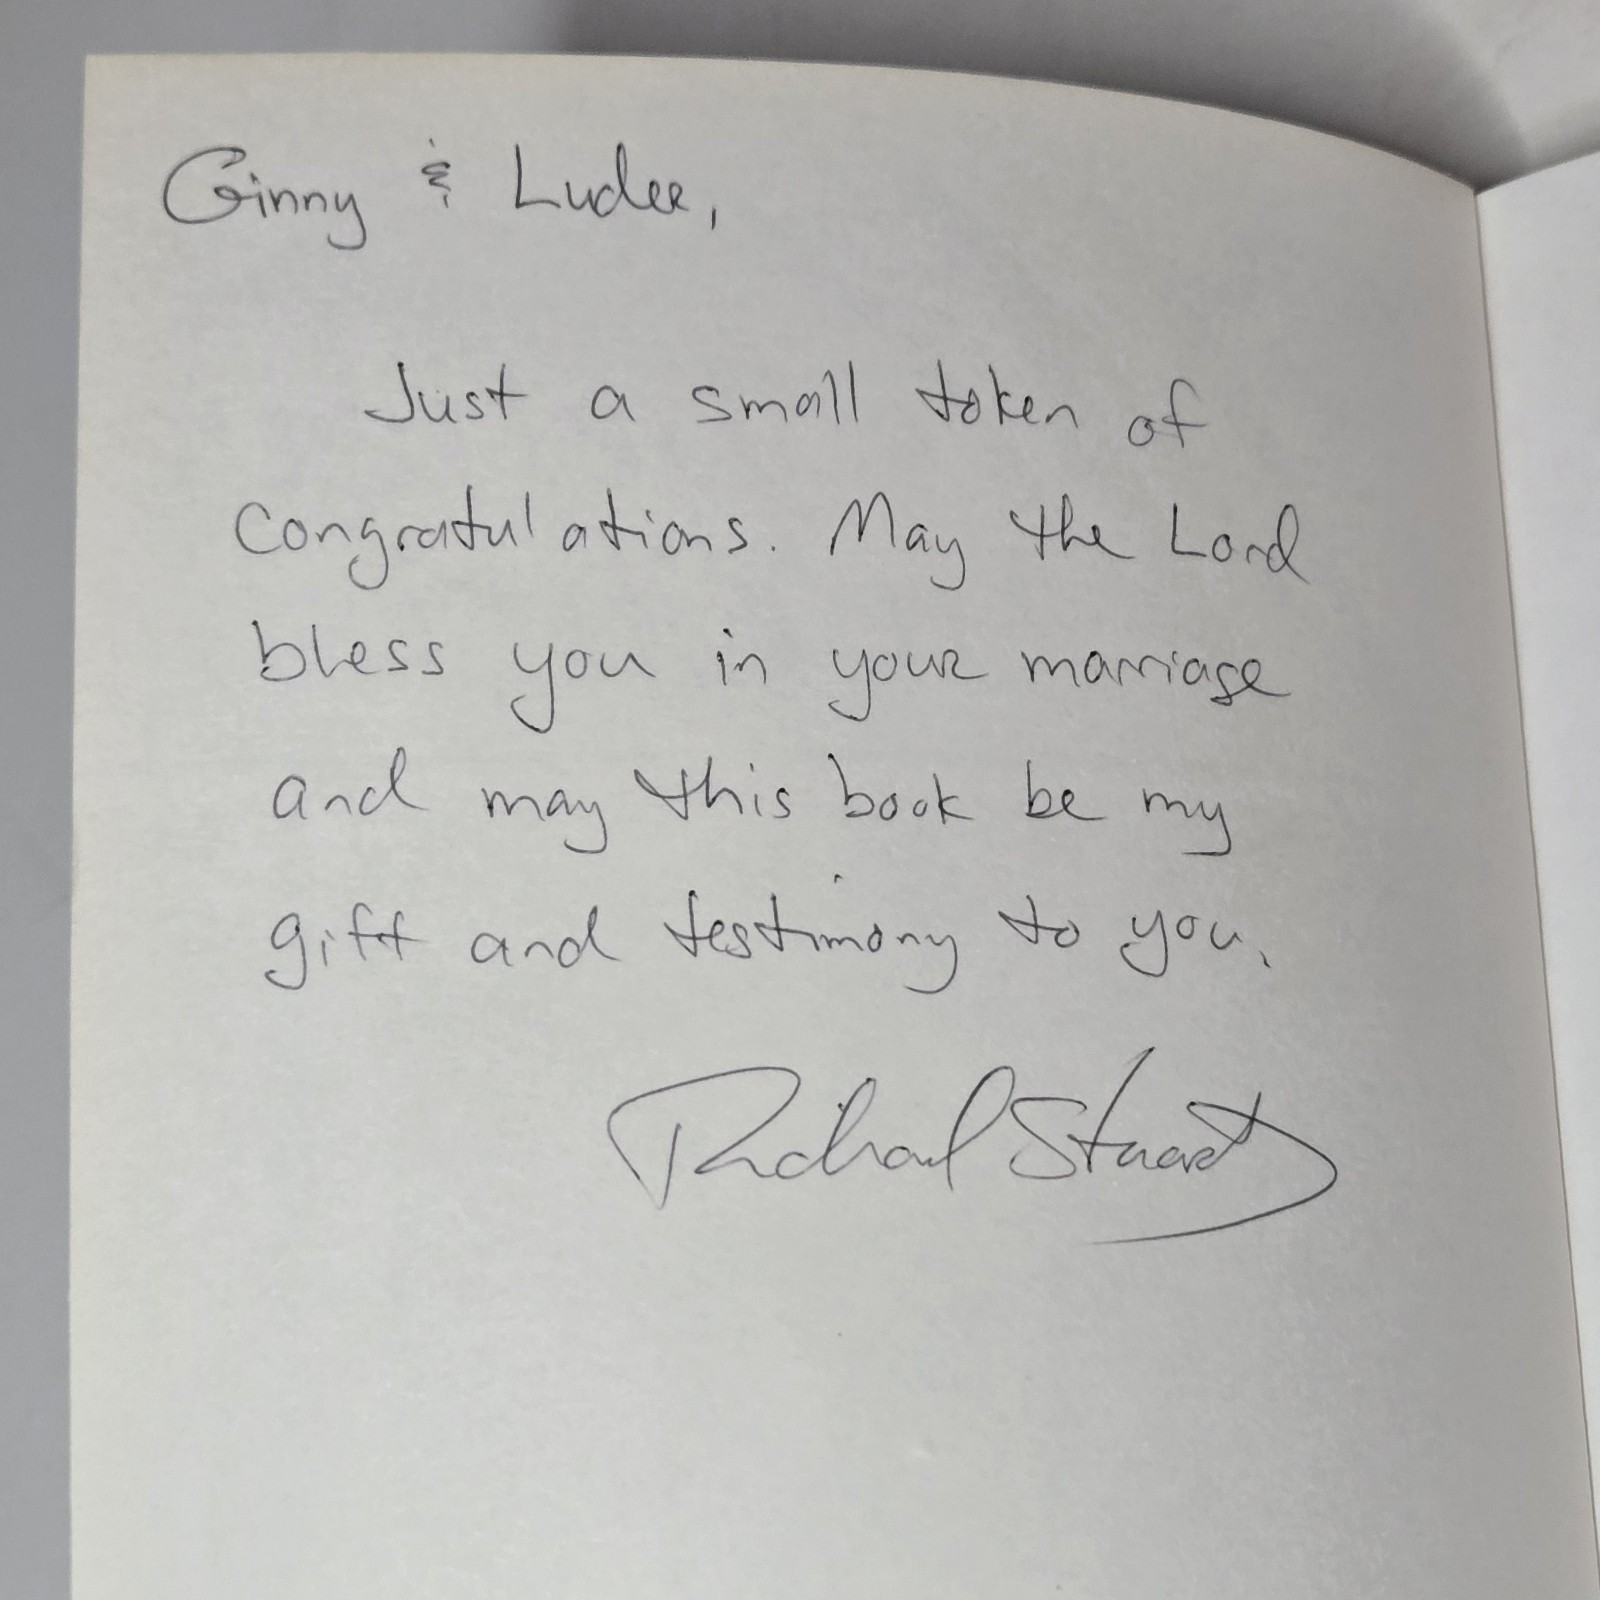 Ginny & Ludee,
Just a small token of
congratulations. May the Lord
bless you in your marriage
and may this book be my
gift and testimony to you.
Richard Stuart